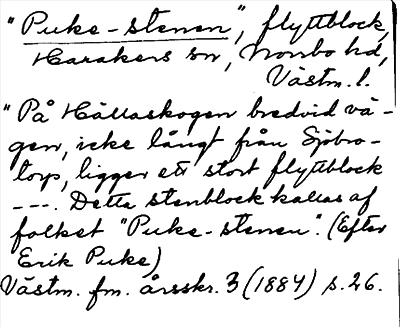 "Puke-stenen", flyttblock,
Harakers sn, Norrbo hd,
Västm. l.
"På Hällaskogen bredvid vä-
gen, icke långt från Sjöbro-
torp, ligger ett stort flyttblock
---. Detta stenblock kallas af
folket "Puke-stenen". (Efter
Erik Puke)
Västm. fm. årsskr. 3 (1884) s. 26.